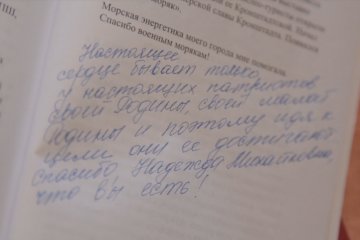 Морская энергетика моего города мне помогала.
Спасибо военным морякам!
Настоящее
сердце бывает только
у настоящих патриотов
своей Родины, своей малой
Родины и поэтому идя к
цели они её достигают
спасибо, Надежда Михайловна,
что вы есть!